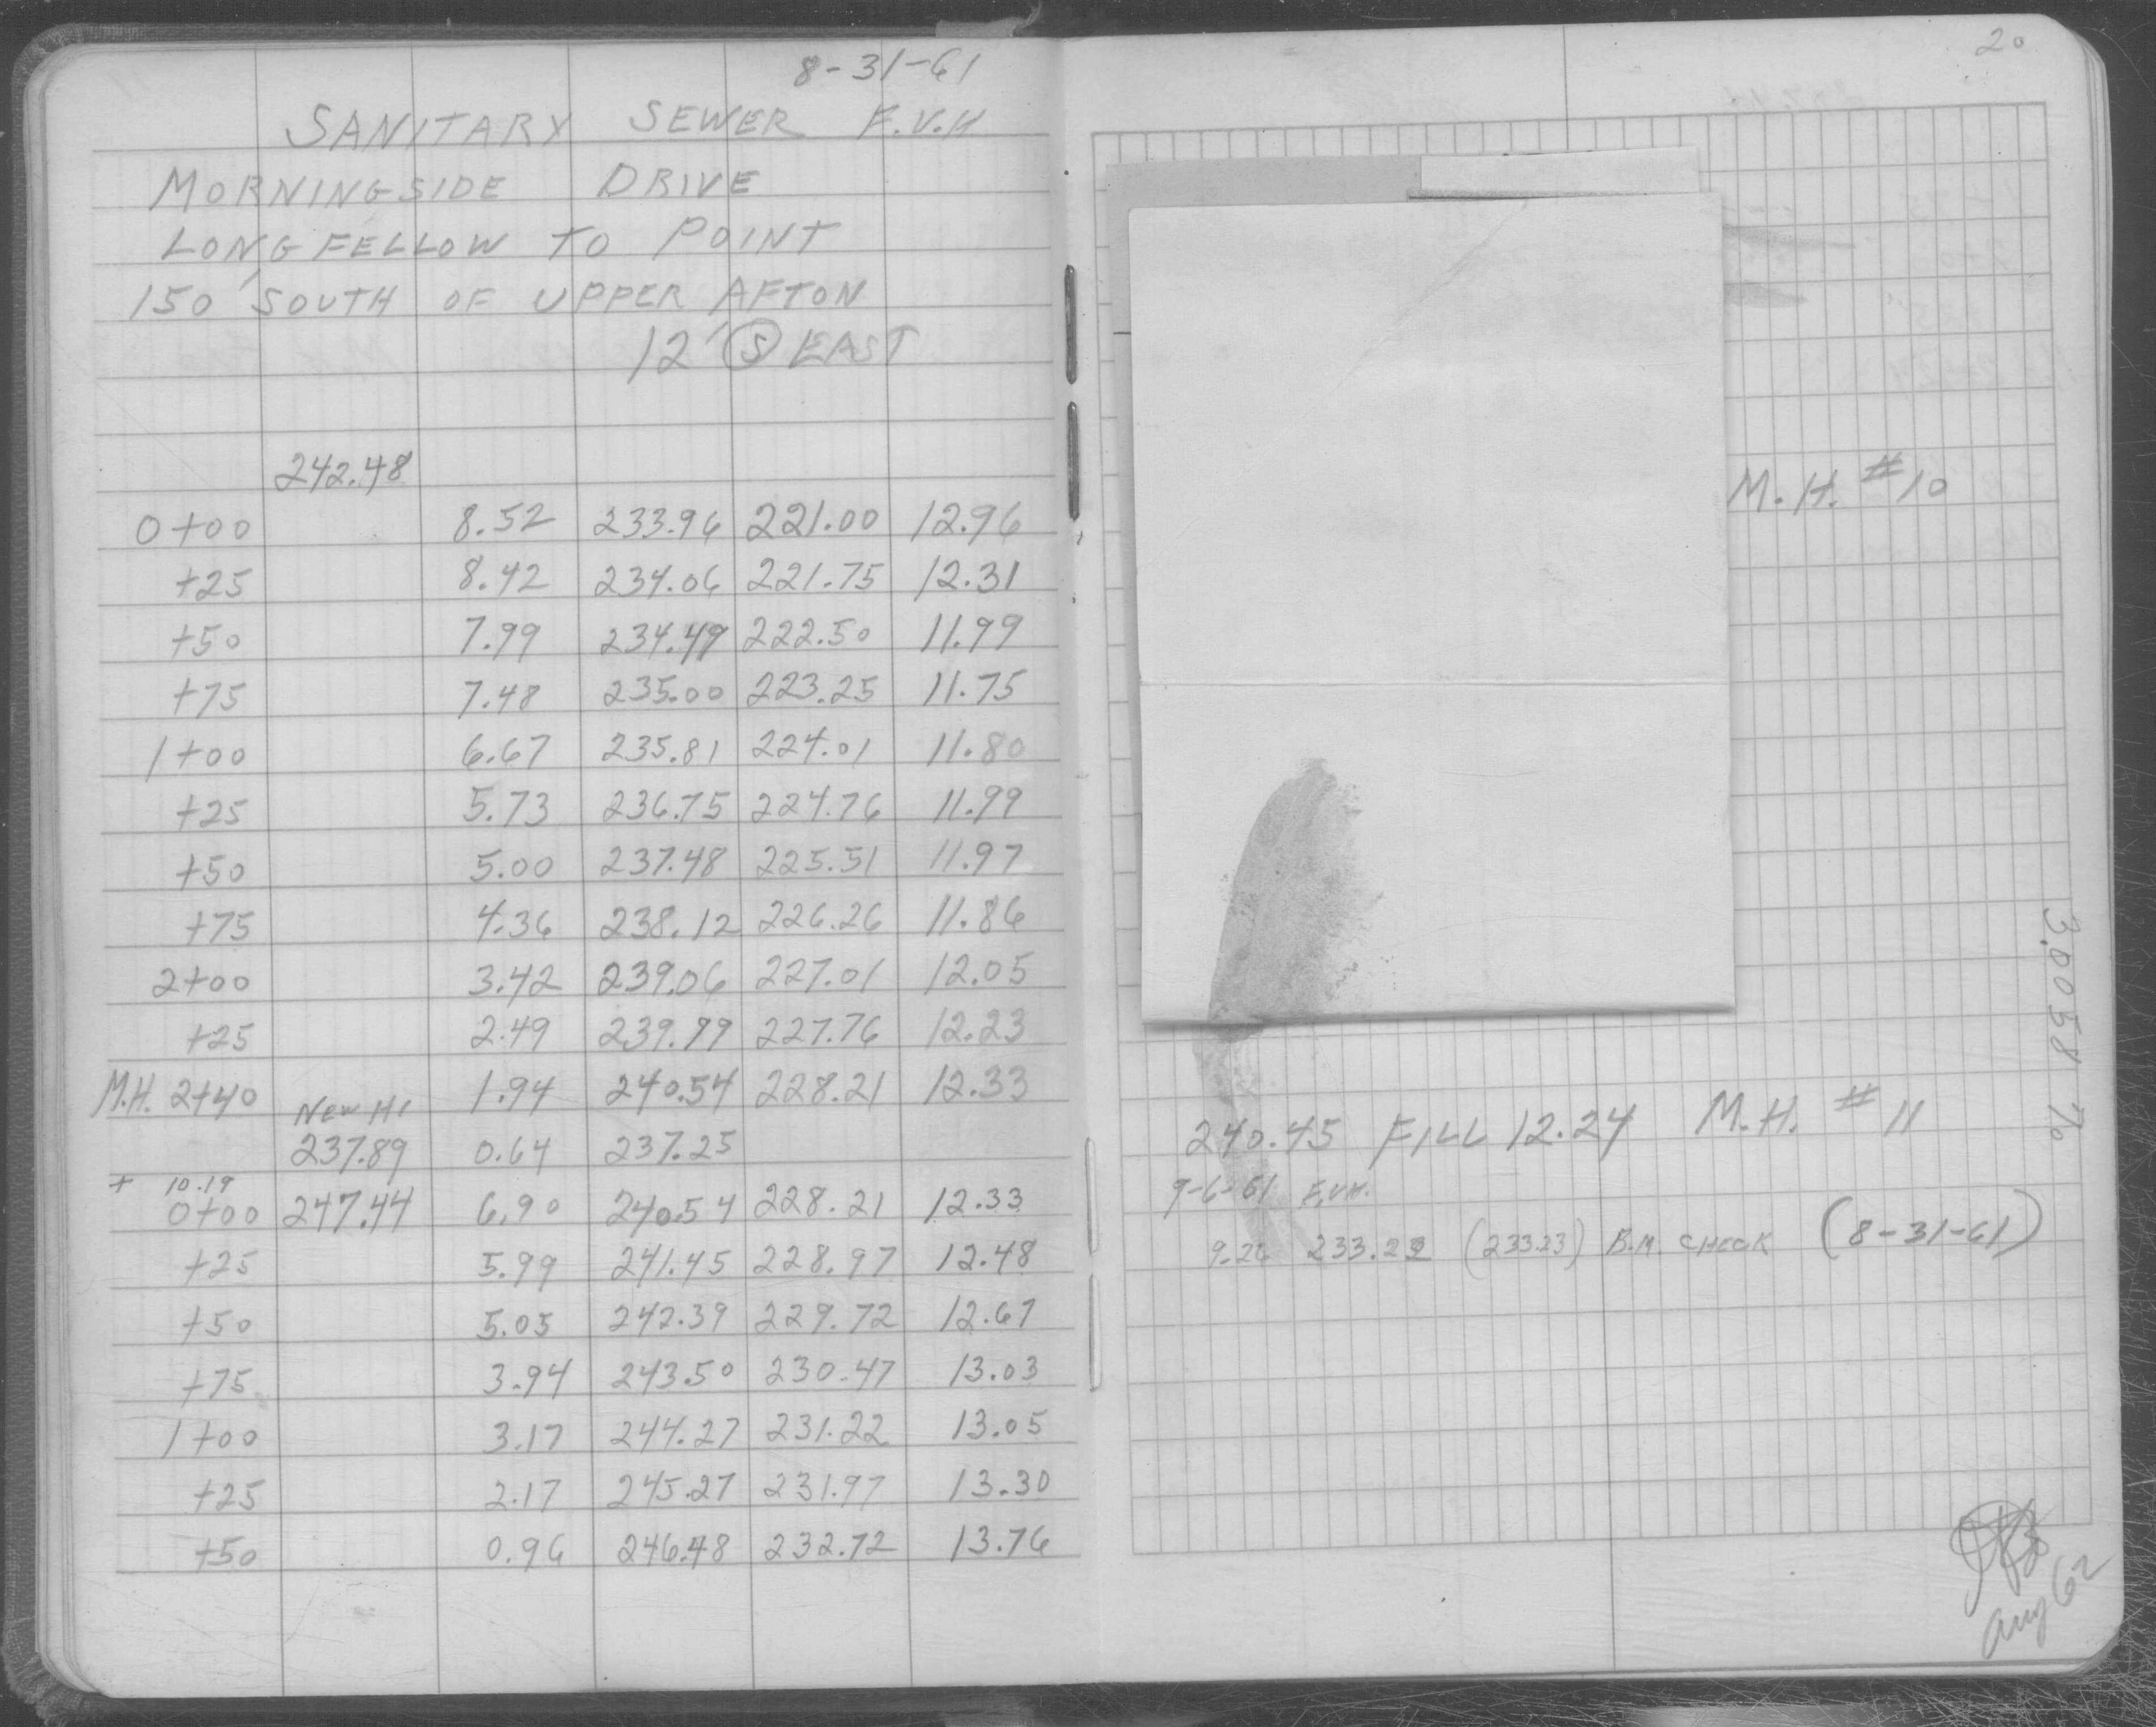 8-31-61
SANITARY SEWER F.V.H
MORNINGSIDE DRIVE
LONGFELLOW TO POINT
150' SOUTH OF UPPER AFTON
12' Ⓢ EAST
242.48
0+00 8.52 233.96 221.00 12.96
+25 8.42 234.06 221.75 12.31
+50 7.99 234.49 222.50 11.99
+75 7.48 235.00 223.25 11.75
1+00 6.67 235.81 224.01 11.80
+25 5.73 236.75 224.76 11.99
+50 5.00 237.48 225.51 11.97
+75 4.36 238.12 226.26 11.86
2+00 3.42 239.06 227.01 12.05
+25 2.49 239.99 227.76 12.23
M.H. 2+40 1.94 240.54 228.21 12.33
New HI
237.89 0.64 237.25
+ 10.19
0+00 247.44 6.90 240.54 228.21 12.33
+25 5.99 241.45 228.97 12.48
+50 5.05 242.39 229.72 12.67
+75 3.94 243.50 230.47 13.03
1+00 3.17 244.27 231.22 13.05
+25 2.17 245.27 231.97 13.30
+50 0.96 246.48 232.72 13.76
20
M.H. #10
3.0058 %
240.45 FILL 12.24 M.H. #11
9-6-61 F.V.H.
9.26 233.22 (233.23) B.M. CHECK (8-31-61)
Aug 62